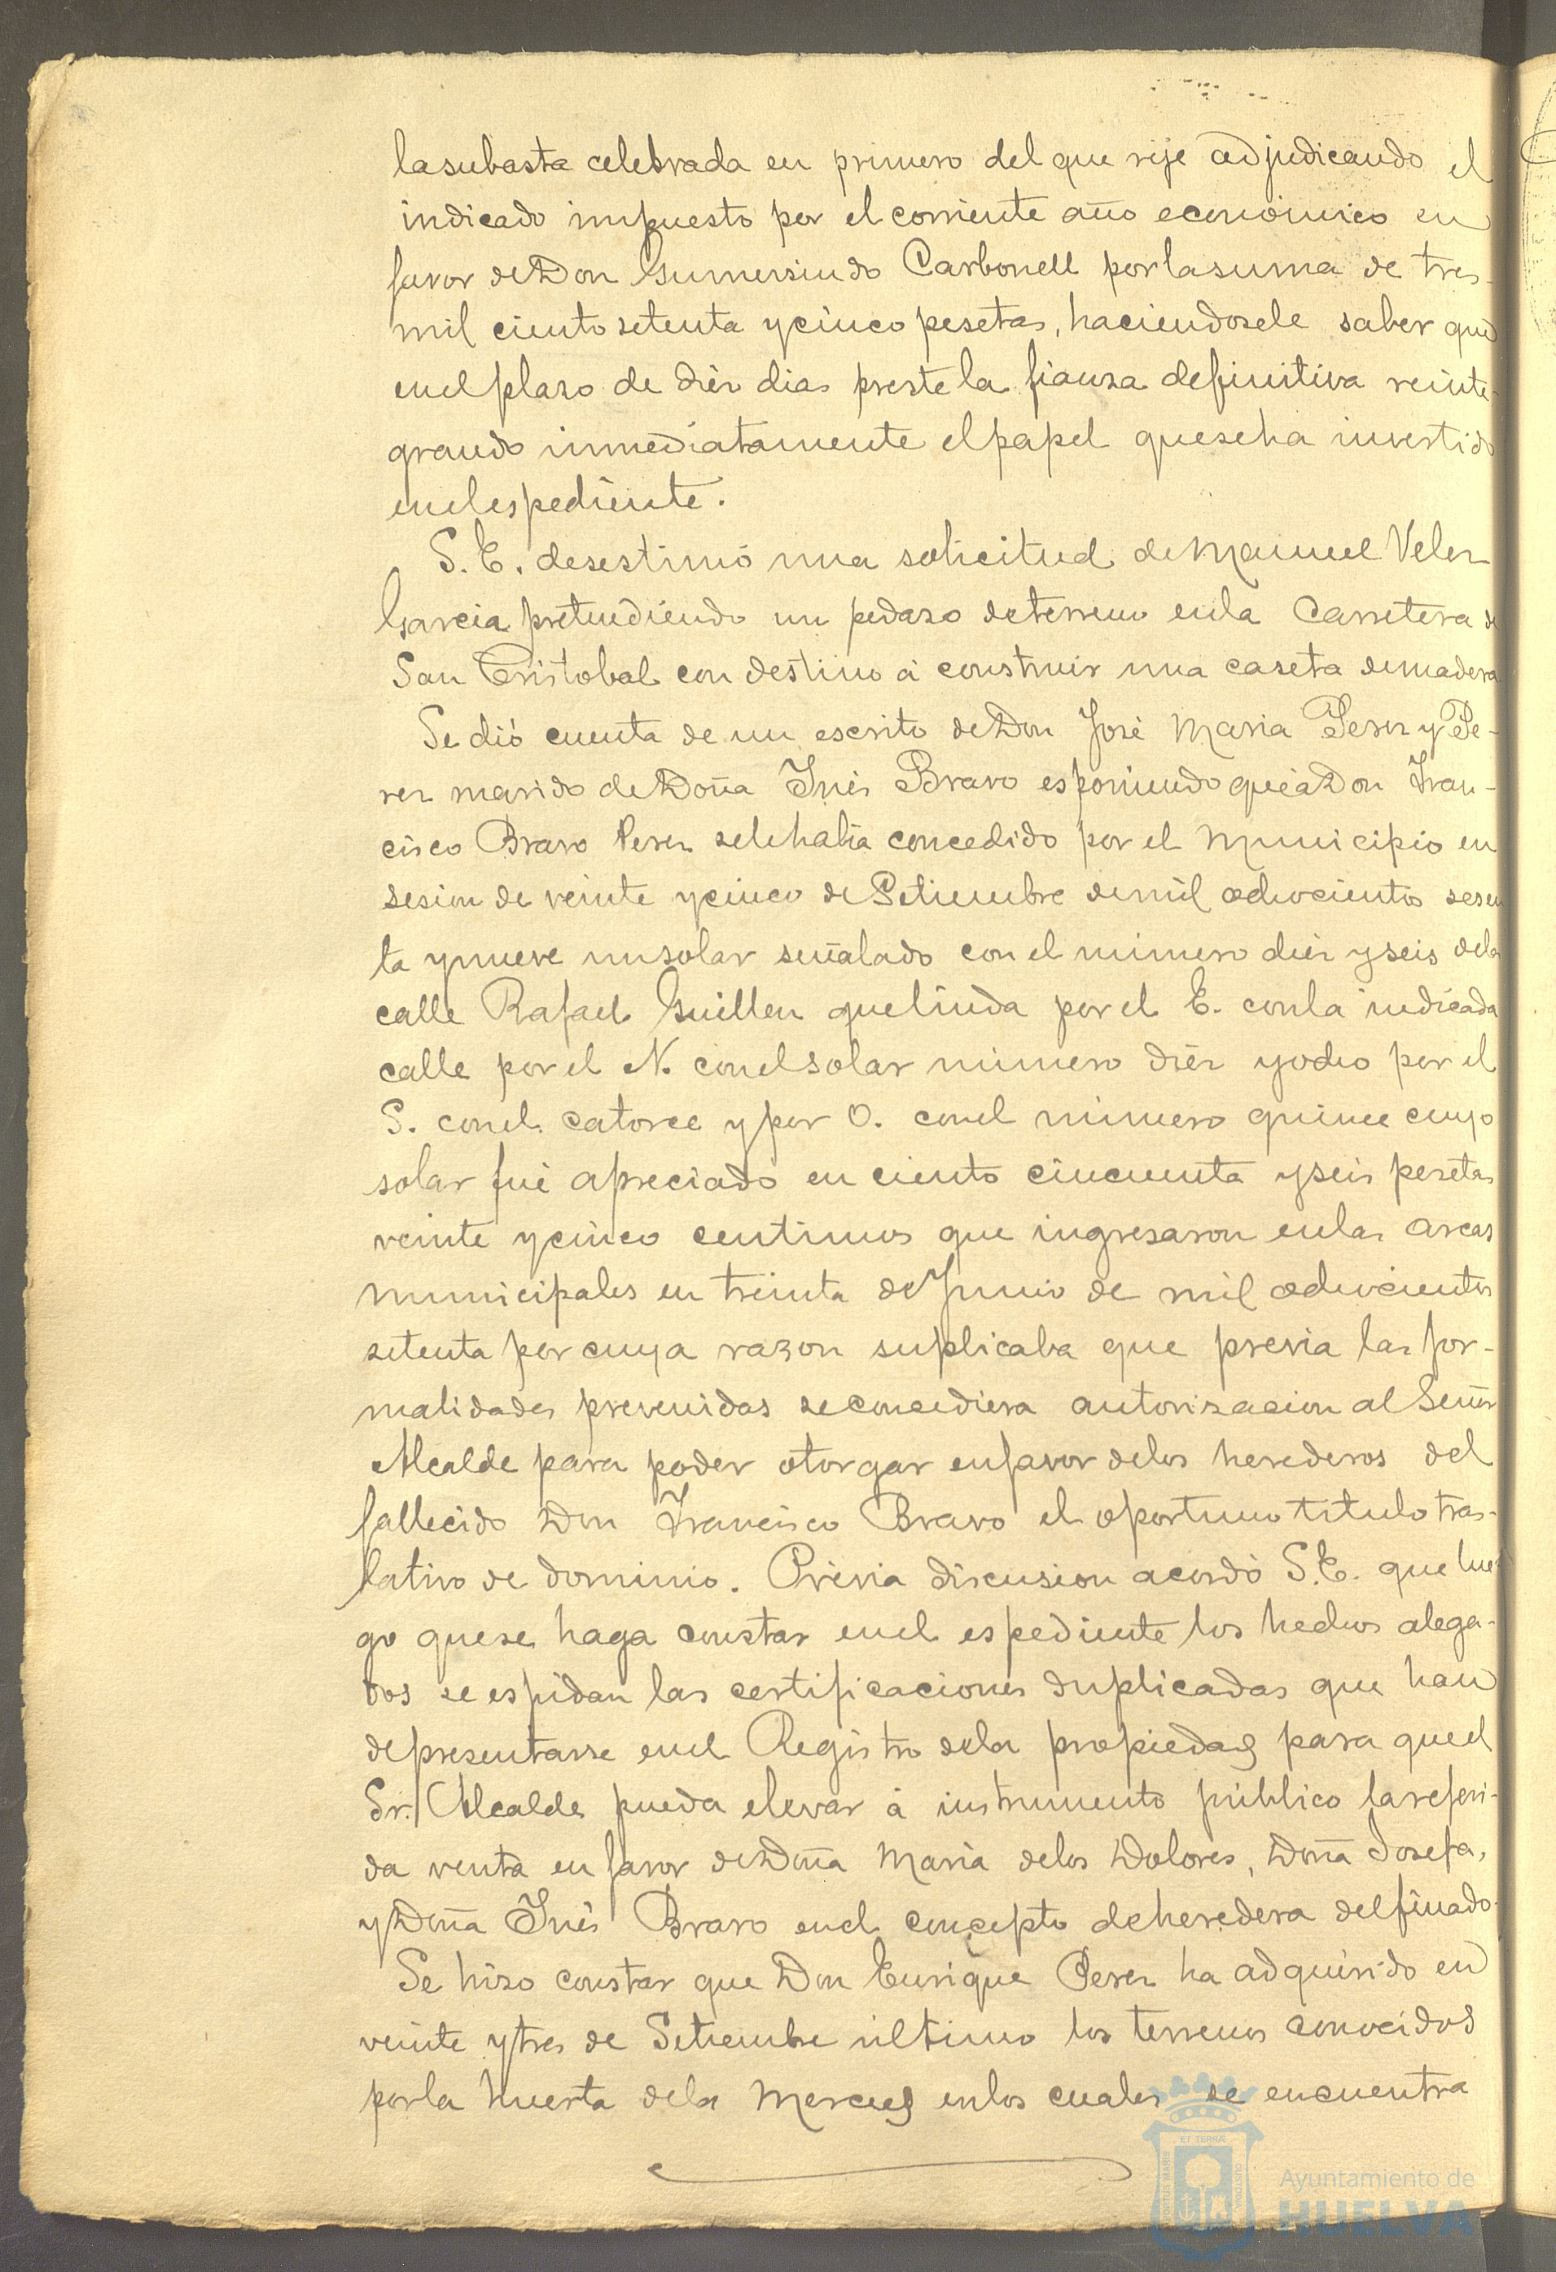 la subasta celebrada en primero del que rije adjudicando el
indicado impuesto por el corriente año económico en
favor de Don Gumersindo Carbonell por la suma de tres
mil ciento setenta y cinco pesetas, haciendosele saber que
en el plazo de diéz dias preste la fianza definitiva reinte-
grando inmediatamente el papel que se ha invertido
en el espediente.
S. E. desestimó una solicitud de Manuel Velez
Garcia pretendiendo un pedazo de terreno en la Carretera de
San Cristobal con destino á construir una caseta de madera
Se dió cuenta de un escrito de Don José Maria Perez y Pe-
rez marido de Doña Inés Bravo esponiendo que á Don Fran-
cisco Bravo Perez se le habia concedido por el Municipio en
sesion de veinte y cinco de Setiembre de mil ochocientos sesen
ta y nueve un solar señalado con el número diéz y seis de la
calle Rafael Guillen que linda por el E. con la indicada
calle por el N. con el solar número diéz y ocho por el
S. con el catorce y por O. con el número quince cuyo
solar fué apreciado en ciento cincuenta y seis pesetas
veinte y cinco centimos que ingresaron en las arcas
municipales en treinta de Junio de mil ochocientos
setenta por cuya razon suplicaba que previa las for-
malidades prevenidas se concediera autorizacion al Señor
Alcalde para poder otorgar en favor de los herederos del
fallecido Don Francisco Bravo el oportuno titulo tras-
lativo de dominio. Prévia discusion acordó S. E. que lue
go que se haga constar en el espediente los hechos alega-
dos se espidan las certificaciones duplicadas que han
de presentarse en el Registro de la propiedad para que el
Sr. Alcalde pueda elevar á instrumento público la referi-
da venta en favor de Doña Maria de los Dolores, Doña Josefa,
y Doña Inés Bravo en el concepto de heredera del finado.
Se hizo constar que Don Enrique Perez ha adquirido en
veinte y tres de Setiembre último los terrenos conocidos
por la huerta de la Merced en los cuales se encuentra
Ayuntamiento de
HUELVA